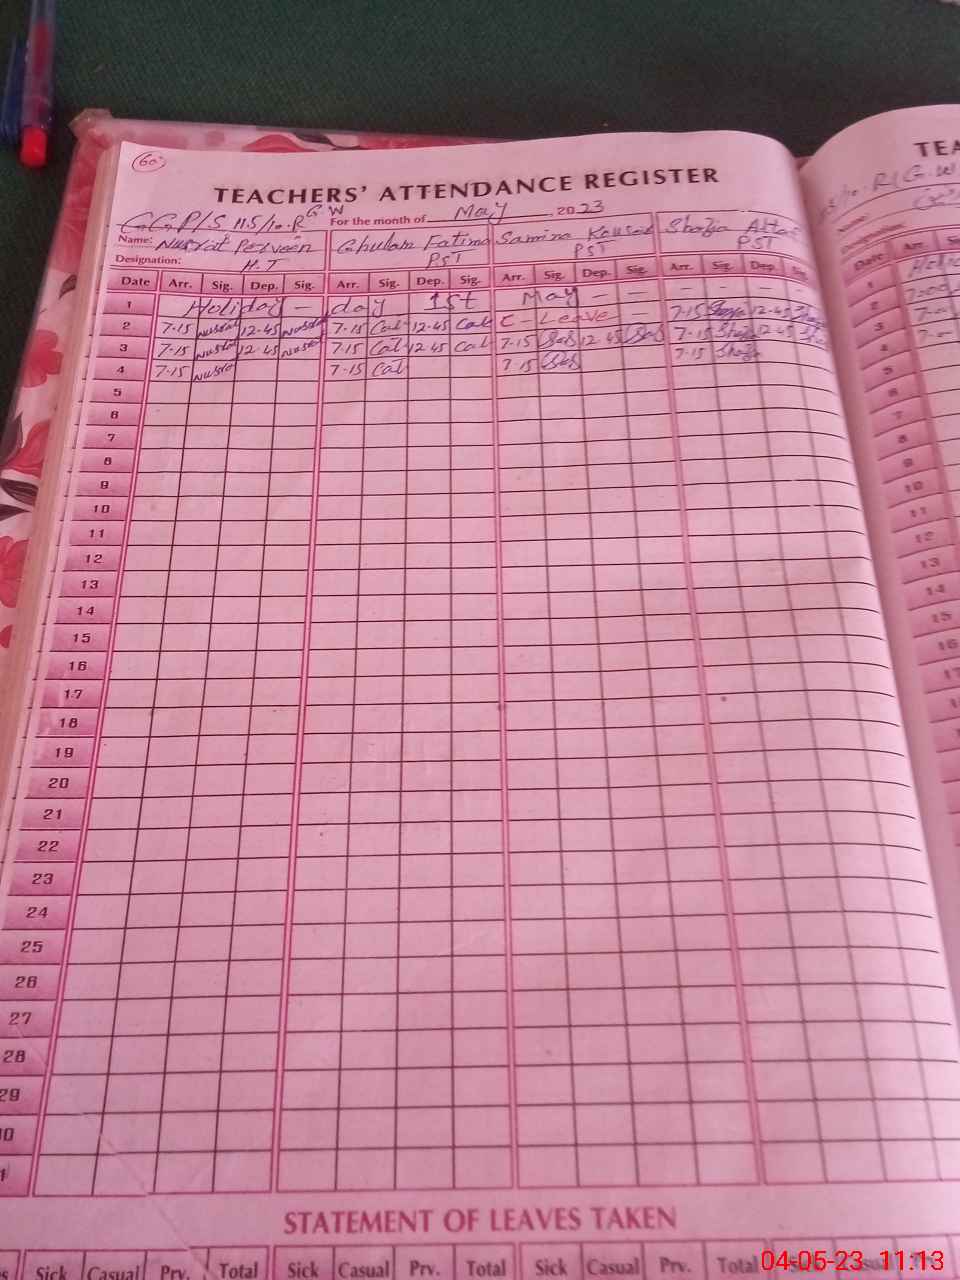 60
TEACHERS' ATTENDANCE REGISTER
G.G.P/S 115/10.R G.W For the month of May, 2023
Name: Nusrat Perveen Ghulam Fatima Samina Kousar Shazia
Designation: H.T PST PST PST
Date Arr. Sig. Dep. Sig. Arr. Sig. Dep. Sig. Arr. Sig. Dep. Sig. Arr. Sig. Dep. Sig.
1 Holiday - day 1st May - - - - - -
2 7-15 Nusrat 12-45 Nusrat 7-15 12-45 C - Leave - 7-15 Shazia 12-45
3 7-15 Nusrat 12-45 Nusrat 7-15 12-45 7-15 12-45 7-15 Shazia 12-45
4 7-15 Nusrat 7-15 7-15 7-15 Shazia
5
6
7
8
9
10
11
12
13
14
15
16
17
18
19
20
21
22
23
24
25
26
27
28
29
STATEMENT OF LEAVES TAKEN
Sick Casual Prv. Total Sick Casual Prv. Total Sick Casual Prv. Total Sick Casual
TEA
R/G.W
Name:
Designation:
Date Arr.
1
2 7-00
3
4
5
6
7
8
9
10
11
12
13
14
15
16
04-05-23 11:13